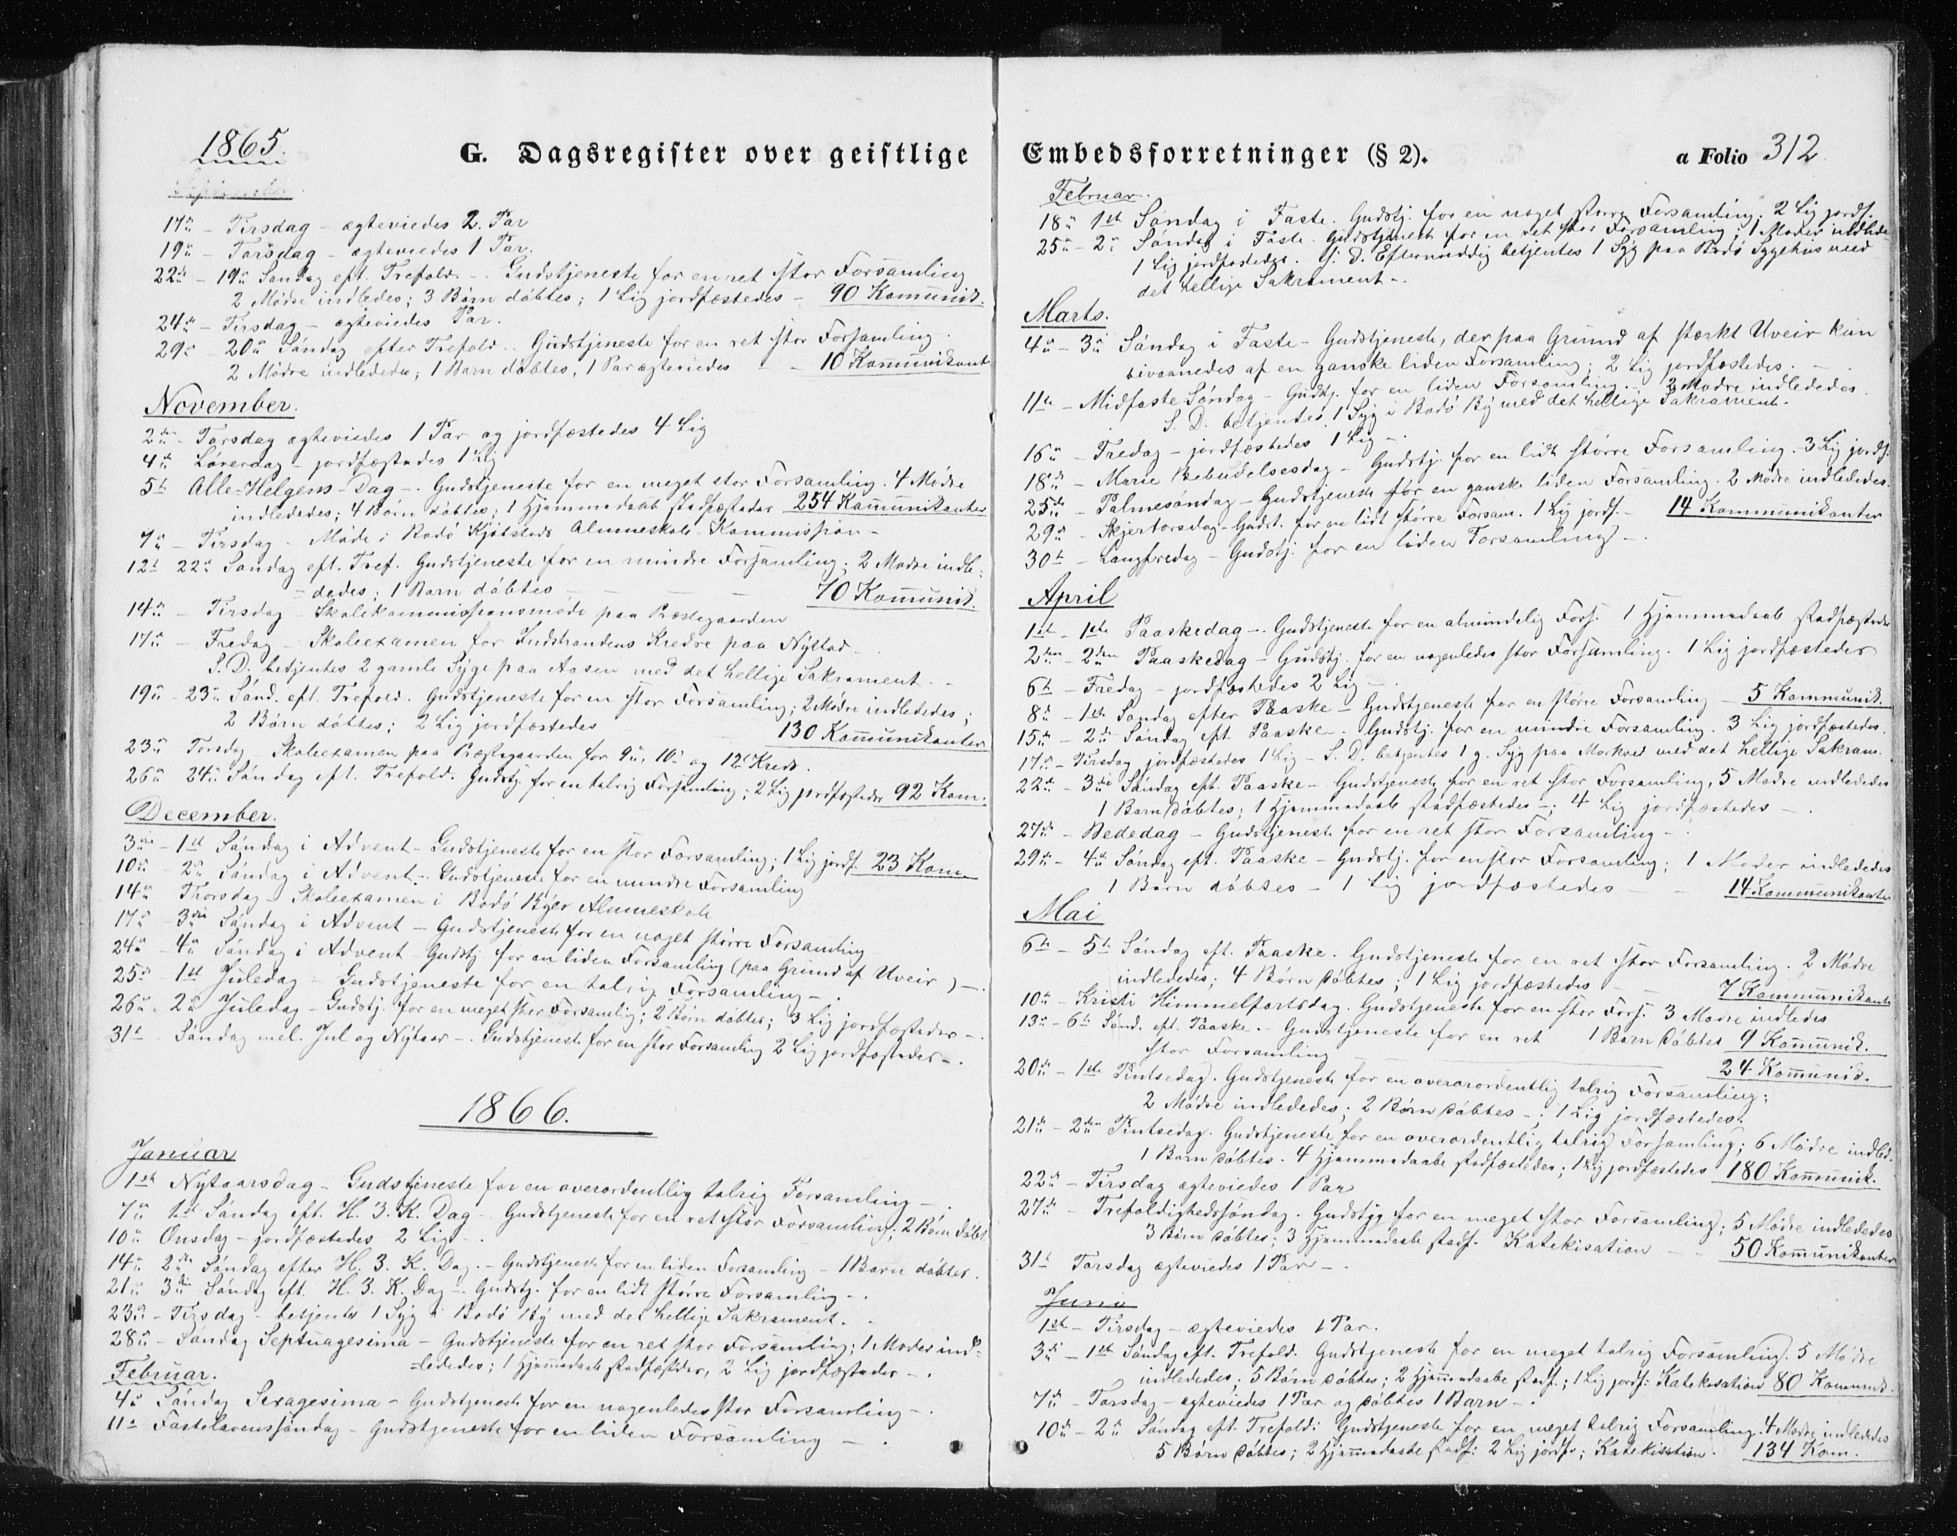 1865.
G. Dagsregister over geistlige
17de - Tirsdag - ægteviedes 2 Par
19de - Torsdag - ægteviedes 1 Par.
22de - 19de Søndag eft. Trefold. - Gudstjeneste for en ret stor Forsamling
2 Mødre indledes; 3 Børn døbtes; 1 Lig jordfæstedes - 90 Komunik.
24de - Tirsdag - ægteviedes Par.
29de - 20de Søndag efter Trefold. - Gudstjeneste for en ret stor Forsamling.
2 Mødre indlededes; 1 Barn døbtes, 1 Par ægteviedes - - 10 Komunikant
November.
2den - Torsdag ægteviedes 1 Par og jordfæstedes 4 Lig
4de Løverdag - jordfæstedes 1 Lig
5te Alle-Helgens-Dag - Gudstjeneste for en meget stor Forsamling. 4 Mødre
indlededes; 4 Børn døbtes; 1 Hjemmedøbt stadfæstedes 254 Komunikanter
7de - Tirsdag - Møde i Bodø Kjøbsteds Almueskole Kommission -
12te 22de Søndag eft. Tref. Gudstjeneste for en mindre Forsamling; 2 Mødre indle-
dedes; 1 Barn døbtes - - - - 70 Komunik.
14de - Tirsdag - Skolekommissionsmøde paa Præstegaarden
17de - Fredag - Skoleexamen for Indstrandens Kredse paa Nystad -
S. D. betjentes 2 gamle Syge paa Aasen med det hellige Sakrament. -
19de - 23de Sønd. eft. Trefold. Gudstjeneste for en stor Forsamling; 2 Mødre indlededes;
2 Børn døbtes; 2 Lig jordfæstedes 130 Komunikanter
23de Torsdag - Skoleexamen paa Præstegaarden for 9de, 10de og 12te Kreds.
26de 24de Søndag eft. Trefold. Gudstj. for en talrig Forsamling; 2 Lig jordfæstedes 92 Kom.
December.
3die - 1ste Søndag i Advent - Gudstjeneste for en stor Forsamling; 1 Lig jordf. 23 Kom.
10de - 2de Søndag i Advent - Gudstjeneste for en mindre Forsamling
14de Thorsdag - Skoleexamen i Bodø Byes Almueskole
17de - 3die Søndag i Advent - Gudstjeneste for en noget større Forsamling
24de - 4de Søndag i Advent - Gudstj. for en liden Forsamling (paa Grund af Uveir) -
25de - 1ste Juledag - Gudstjeneste for en talrig Forsamling -
26de - 2den Juledag - Gudstj. for en meget stor Forsamlig; 2 Børn døbtes; 3 Lig jordfæstedes -
31te - Søndag mel. Jul og Nytaar - Gudstjeneste for en stor Forsamling 2 Lig jordfæstedes -.
1866.
Januar
1ste Nytaarsdag - Gudstjeneste for en overordentlig talrig Forsamling -
7de 1ste Søndag eft. H. 3. K. Dag - Gudstjeneste for en ret stor Forsamling; 2 Børn døbt.
10de Onsdag - jordfæstedes 2 Lig -
14de 2den Søndag efter H. 3. K. Dag - Gudstjeneste for en liden Forsamling - 1 Barn døbtes.
21de 3die Søndag eft. H. 3. K. Dag - Gudstj. for en lidt større Forsamling -
23de - Tirsdag - betjentes 1 Syg i Bodø By med det hellige Sakrament.
28de - Søndag Septuagesima - Gudstjeneste for en ret stor Forsamling; 1 Moder ind-
ledes; 1 Hjemmedøbt stadfæstedes, 2 Lig jordfæstedes -.
Februar.
4de Søndag Sexagesima - Gudstjeneste for en nogenledes stor Forsamling -
11te Fastelavenssøndag - Gudstjeneste for en liden Forsamling -
Embedsforretninger (§ 2).
a Folio 312
Februar.
18de 1ste Søndag i Faste. Gudstj. for en noget større Forsamling; 2 Lig jordf.
25de - 2de Søndag i Faste. Gudstjeneste for en ret stor Forsamling; 1 Moder indlede
1 Lig jordfæstedes. S. D. Eftermiddag betjentes 1 Syg paa Bodø Sygehus med
det hellige Sakrament -.
Marts.
4de - 3die Søndag i Faste - Gudstjeneste, der paa Grund af stærkt Uveir kun
bivaanedes af en ganske liden Forsamling; 2 Lig jordfæstedes. -
11te - Midfaste Søndag - Gudstj. for en liden Forsamling. 2 Mødre indlededes.
S. D. betjentes 1 Syg i Bodø By med det hellige Sakrament.
16de - Fredag - jordfæstedes 1 Lig -
18de - Marie Bebudelsesdag - Gudstj. for en lidt større Forsamling. 3 Lig jordf.
25de - Palmesøndag - Gudstjeneste for en ganske liden Forsamling. 2 Mødre indlededes.
29de - Skjertorsdag - Gudst. for en lidt større Forsam. 1 Lig jordf. - 14 Kommunikanter
30te - Langfredag - Gudstj. for en liden Forsamling -
April
1ste - 1ste Paaskedag - Gudstjeneste for en almindelig Fors. 1 Hjemmedøbt stadfæstedes
2den - 2den Paaskedag - Gudstj. for en nogenledes stor Forsamling. 1 Lig jordfæstedes
6te - Fredag - jordfæstedes 2 Lig -
8de - 1ste Søndag efter Paaske - Gudstjeneste for en større Forsamling - 5 Kommunik.
15de - 2de Søndag eft. Paaske. Gudstj. for en mindre Forsamling. 3 Lig jordfæstedes.
17de - Tirsdag jordfæstedes 1 Lig - S. D. betjentes 1 g. Syg paa Morkved med det hellige Sakram.
22de - 3die Søndag eft. Paaske - Gudstjeneste for en ret stor Forsamling, 5 Mødre indlededes
1 Barn døbtes; 1 Hjemmedøbt stadfæstedes -; 4 Lig jordfæstedes -
27de - Bededag - Gudstjeneste for en ret stor Forsamling -
29de - 4de Søndag eft. Paaske - Gudstj. for en stor Forsamling; 1 Moder indlededes
1 Barn døbtes - 1 Lig jordfæstedes - - 14 Kommunikanter
Mai
6te - 5te Søndag eft. Paaske. Gudstjeneste for en ret stor Forsamling. 2 Mødre
indlededes; 4 Børn døbtes; 1 Lig jordfæstedes - - 7 Kommunikante
10de - Kristi Himmelfartsdag. Gudstjeneste for en stor Fors. 3 Mødre indledes
13de - 6te Sønd. eft. Paaske. - Gudstjeneste for en ret 1 Barn døbtes 9 Komunik.
stor Forsamling - 24 Komunik.
20de - 1ste Pintsedag. Gudstjeneste for en overordentlig talrig Forsamling;
2 Mødre indlededes; 2 Børn døbtes -; 1 Lig jordfæstedes.
21de - 2den Pintsedag. Gudstjeneste for en overordentlig talrig Forsamling; 6 Mødre indled.
1 Barn døbtes. 4 Hjemmedøbte stadfæstedes; 1 Lig jordfæstedes 180 Komunik.
22de - Tirsdag ægteviedes 1 Par
27de - Trefoldighedssøndag. Gudstjg for en meget stor Forsamling; 5 Mødre indlededes
3 Børn døbtes; 3 Hjemmedøbte stadf. Katekisation - - 50 Komunikanter
31te Torsdag ægteviedes 1 Par -.
Juni
1ste - Tirsdag - ægteviedes 1 Par.
3die - 1ste Søndag eft. Trefold. Gudstjeneste for en meget talrig Forsamling. 5 Mødre
indlededes; 5 Børn døbtes; 2 Hjemmedøbte stadf.; 1 Lig jordf: Katekisation 80 Komunik.
7de - Torsdag - ægteviedes 1 Par og døbtes 1 Barn -.
10de - 2de Søndag eft. Trefold: Gudstjeneste for en meget talrig Forsamling. 4 Mødre indledes
5 Børn døbtes; 2 Hjemmedøbte stadf: 2 Lig jordf.; Katekisation. 134 Kom.